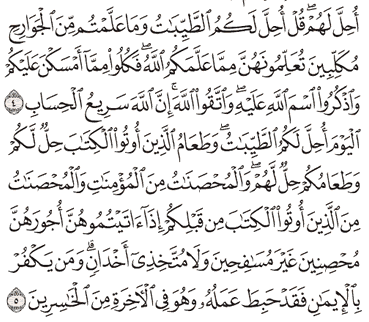 أُحِلَّ لَهُمْ ۖ قُلْ أُحِلَّ لَكُمُ ٱلطَّيِّبَٰتُ وَمَا عَلَّمْتُم مِّنَ ٱلْجَوَارِحِ
مُكَلِّبِينَ تُعَلِّمُونَهُنَّ مِمَّا عَلَّمَكُمُ ٱللَّهُ ۖ فَكُلُوا۟ مِمَّآ أَمْسَكْنَ عَلَيْكُمْ
وَٱذْكُرُوا۟ ٱسْمَ ٱللَّهِ عَلَيْهِ ۖ وَٱتَّقُوا۟ ٱللَّهَ ۚ إِنَّ ٱللَّهَ سَرِيعُ ٱلْحِسَابِ ٤
ٱلْيَوْمَ أُحِلَّ لَكُمُ ٱلطَّيِّبَٰتُ ۖ وَطَعَامُ ٱلَّذِينَ أُوتُوا۟ ٱلْكِتَٰبَ حِلٌّ لَّكُمْ
وَطَعَامُكُمْ حِلٌّ لَّهُمْ ۖ وَٱلْمُحْصَنَٰتُ مِنَ ٱلْمُؤْمِنَٰتِ وَٱلْمُحْصَنَٰتُ
مِنَ ٱلَّذِينَ أُوتُوا۟ ٱلْكِتَٰبَ مِن قَبْلِكُمْ إِذَآ ءَاتَيْتُمُوهُنَّ أُجُورَهُنَّ
مُحْصِنِينَ غَيْرَ مُسَٰفِحِينَ وَلَا مُتَّخِذِىٓ أَخْدَانٍ ۗ وَمَن يَكْفُرْ
بِٱلْإِيمَٰنِ فَقَدْ حَبِطَ عَمَلُهُۥ وَهُوَ فِى ٱلْءَاخِرَةِ مِنَ ٱلْخَٰسِرِينَ ٥